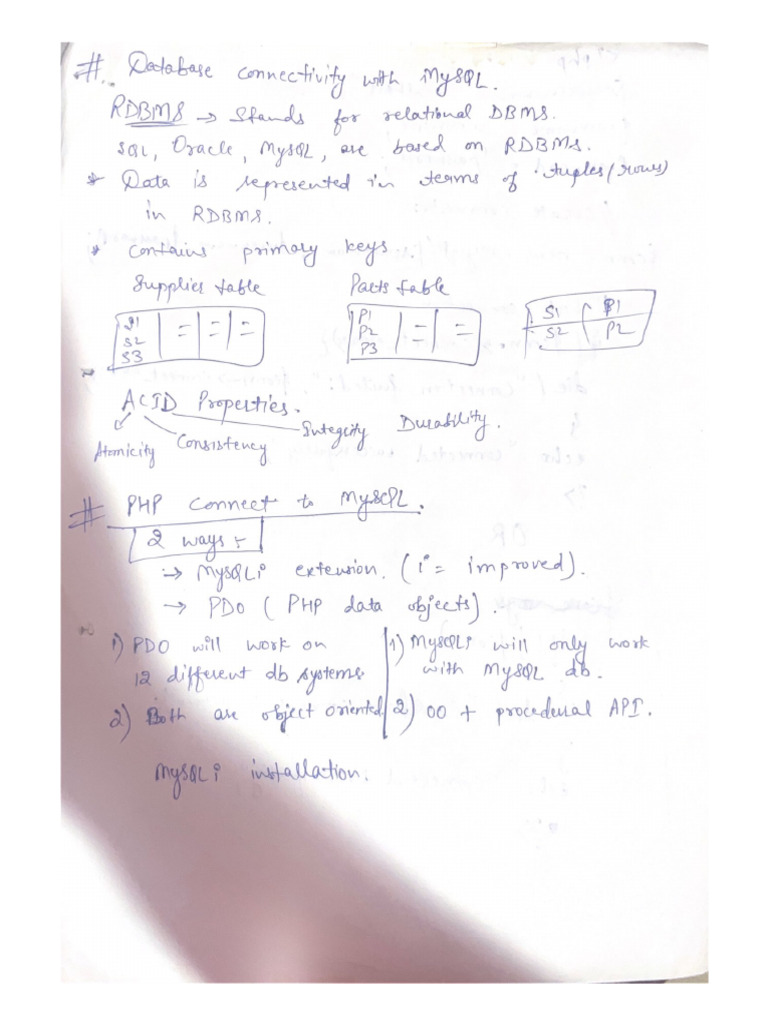 # Database connectivity with MySQL.
RDBMS → Stands for relational DBMS.
SQL, Oracle, MySQL, are based on RDBMS.
* Data is represented in terms of tuples (rows)
in RDBMS.
* Contains primary keys
Supplies table Parts table
S1 = = = P1 = = S1 P1
S2 P2 S2 P2
S3 P3
ACID Properties.
Atomicity Consistency Integrity Durability.
# PHP Connect to MySQL.
2 ways :-
→ MySQLi extension. (i = improved).
→ PDO (PHP data objects).
1) PDO will work on 1) MySQLi will only work
12 different db systems. with MySQL db.
2) Both are object oriented 2) OO + procedural API.
MySQLi installation.